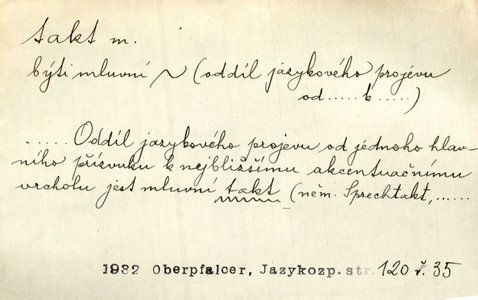 takt m.
býti mluvní ~ (oddíl jazykového projevu
od ..... k .....)
..... Oddíl jazykového projevu od jednoho hlav-
ního přízvuku k nejbližšímu akcentuačnímu
vrcholu jest mluvní takt (něm. Sprechtakt, ......
1932 Oberpfalcer, Jazykozp. str. 120 ř. 35